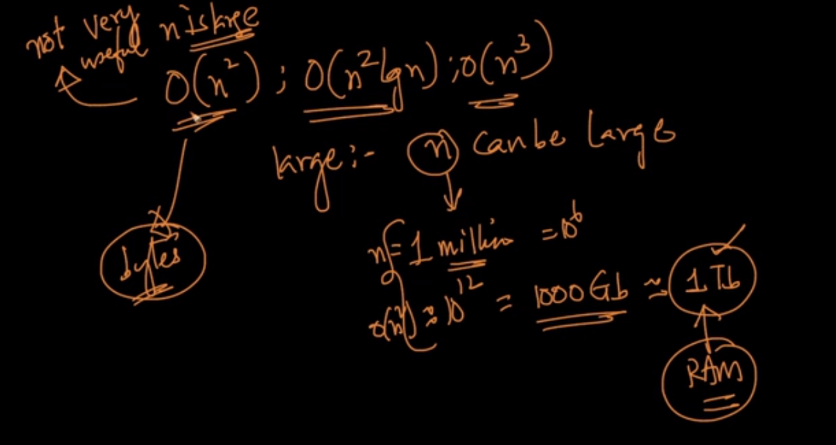 not very
useful n is large
O(n²) ; O(n²lgn) ; O(n³)
large :- n can be large
n = 1 million = 10⁶
bytes
O(n²) ≈ 10¹² = 1000 Gb ≈ 1 Tb
RAM